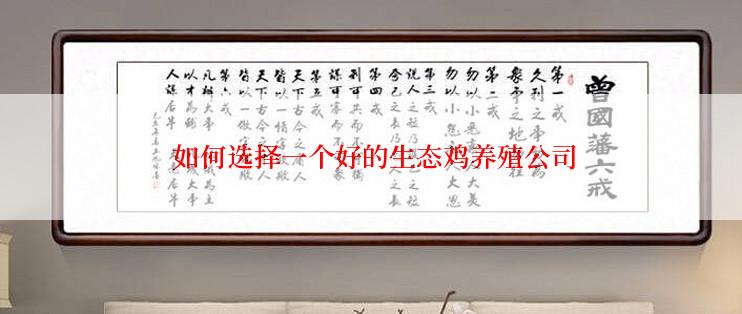 曾國藩六戒
第一戒
久利之事勿為
衆争之地勿往
第二戒
勿以小惡棄人大美
勿以小怨忘人大恩
第三戒
说人之短乃護己之短
夸己之長乃忌人之長
第四戒
利可共而不可獨
謀可寡而不可衆
第五戒
天下古今之庸人
皆以一惰字致敗
天下古今之才人
皆以一傲字致敗
第六戒
凡辦大事
以識為主
以才為輔
人謀居半
如何选择一个好的生态鸡养殖公司